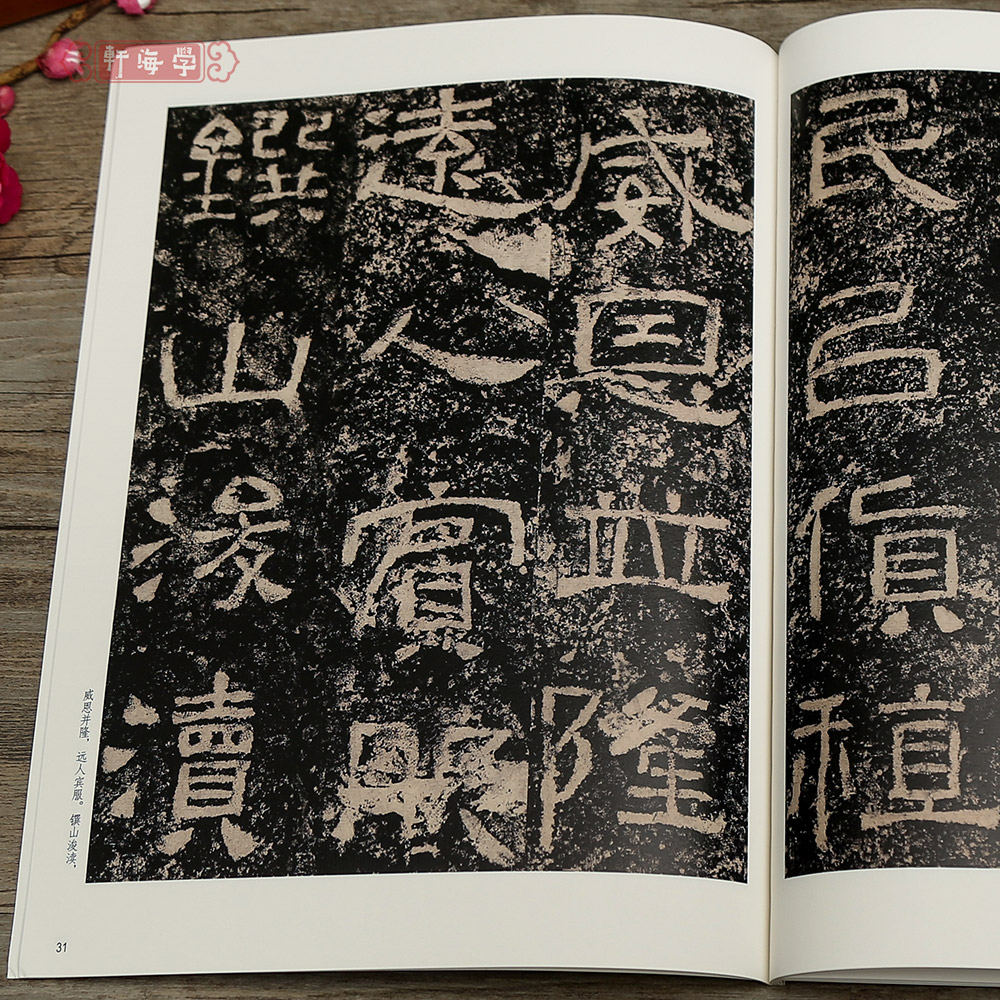 學海軒
民㠯貨稙
威恩並隆
遠人賓服
鐉山浚瀆
威恩并隆，远人宾服。镌山浚渎，
31